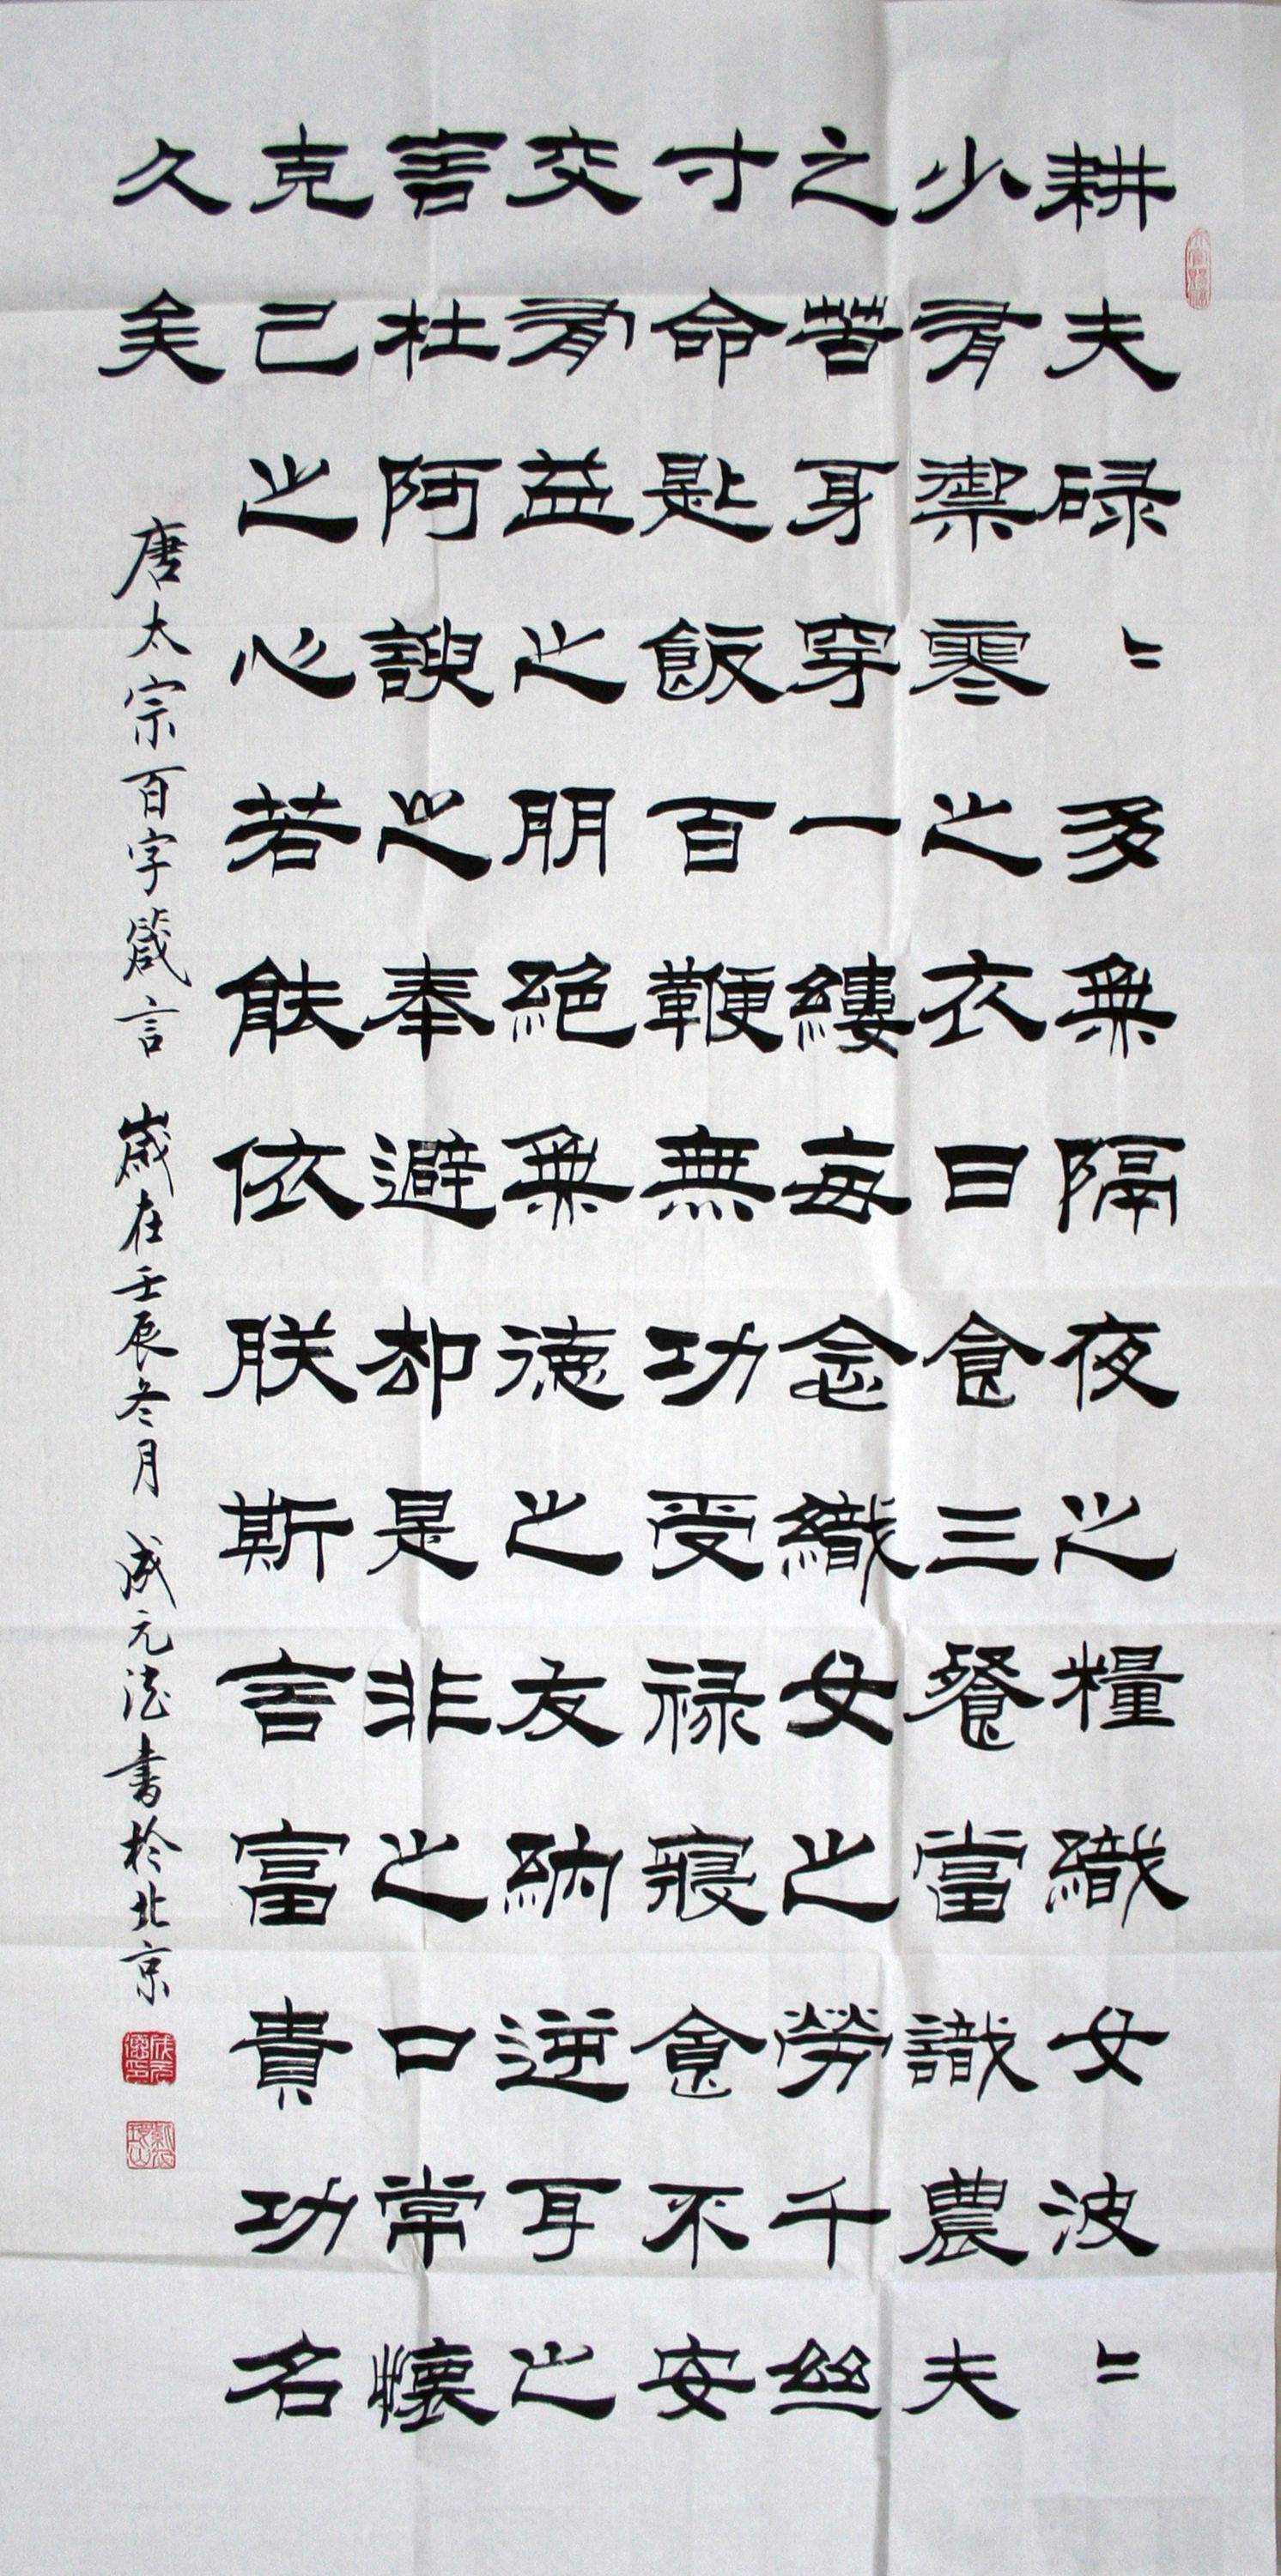 耕夫碌〻多無隔夜之糧織女波〻
少有禦寒之衣日食三餐當識農夫
之苦身穿一縷每念織女之勞千絲
寸命匙飯百鞭無功受禄寢食不安
交有益之朋絕無德之友納逆耳之
言杜阿諛之奉避却是非之口常懷
克己之心若能依朕斯言富貴功名
久矣
唐太宗百字箴言 歲在壬辰冬月 成元法書於北京